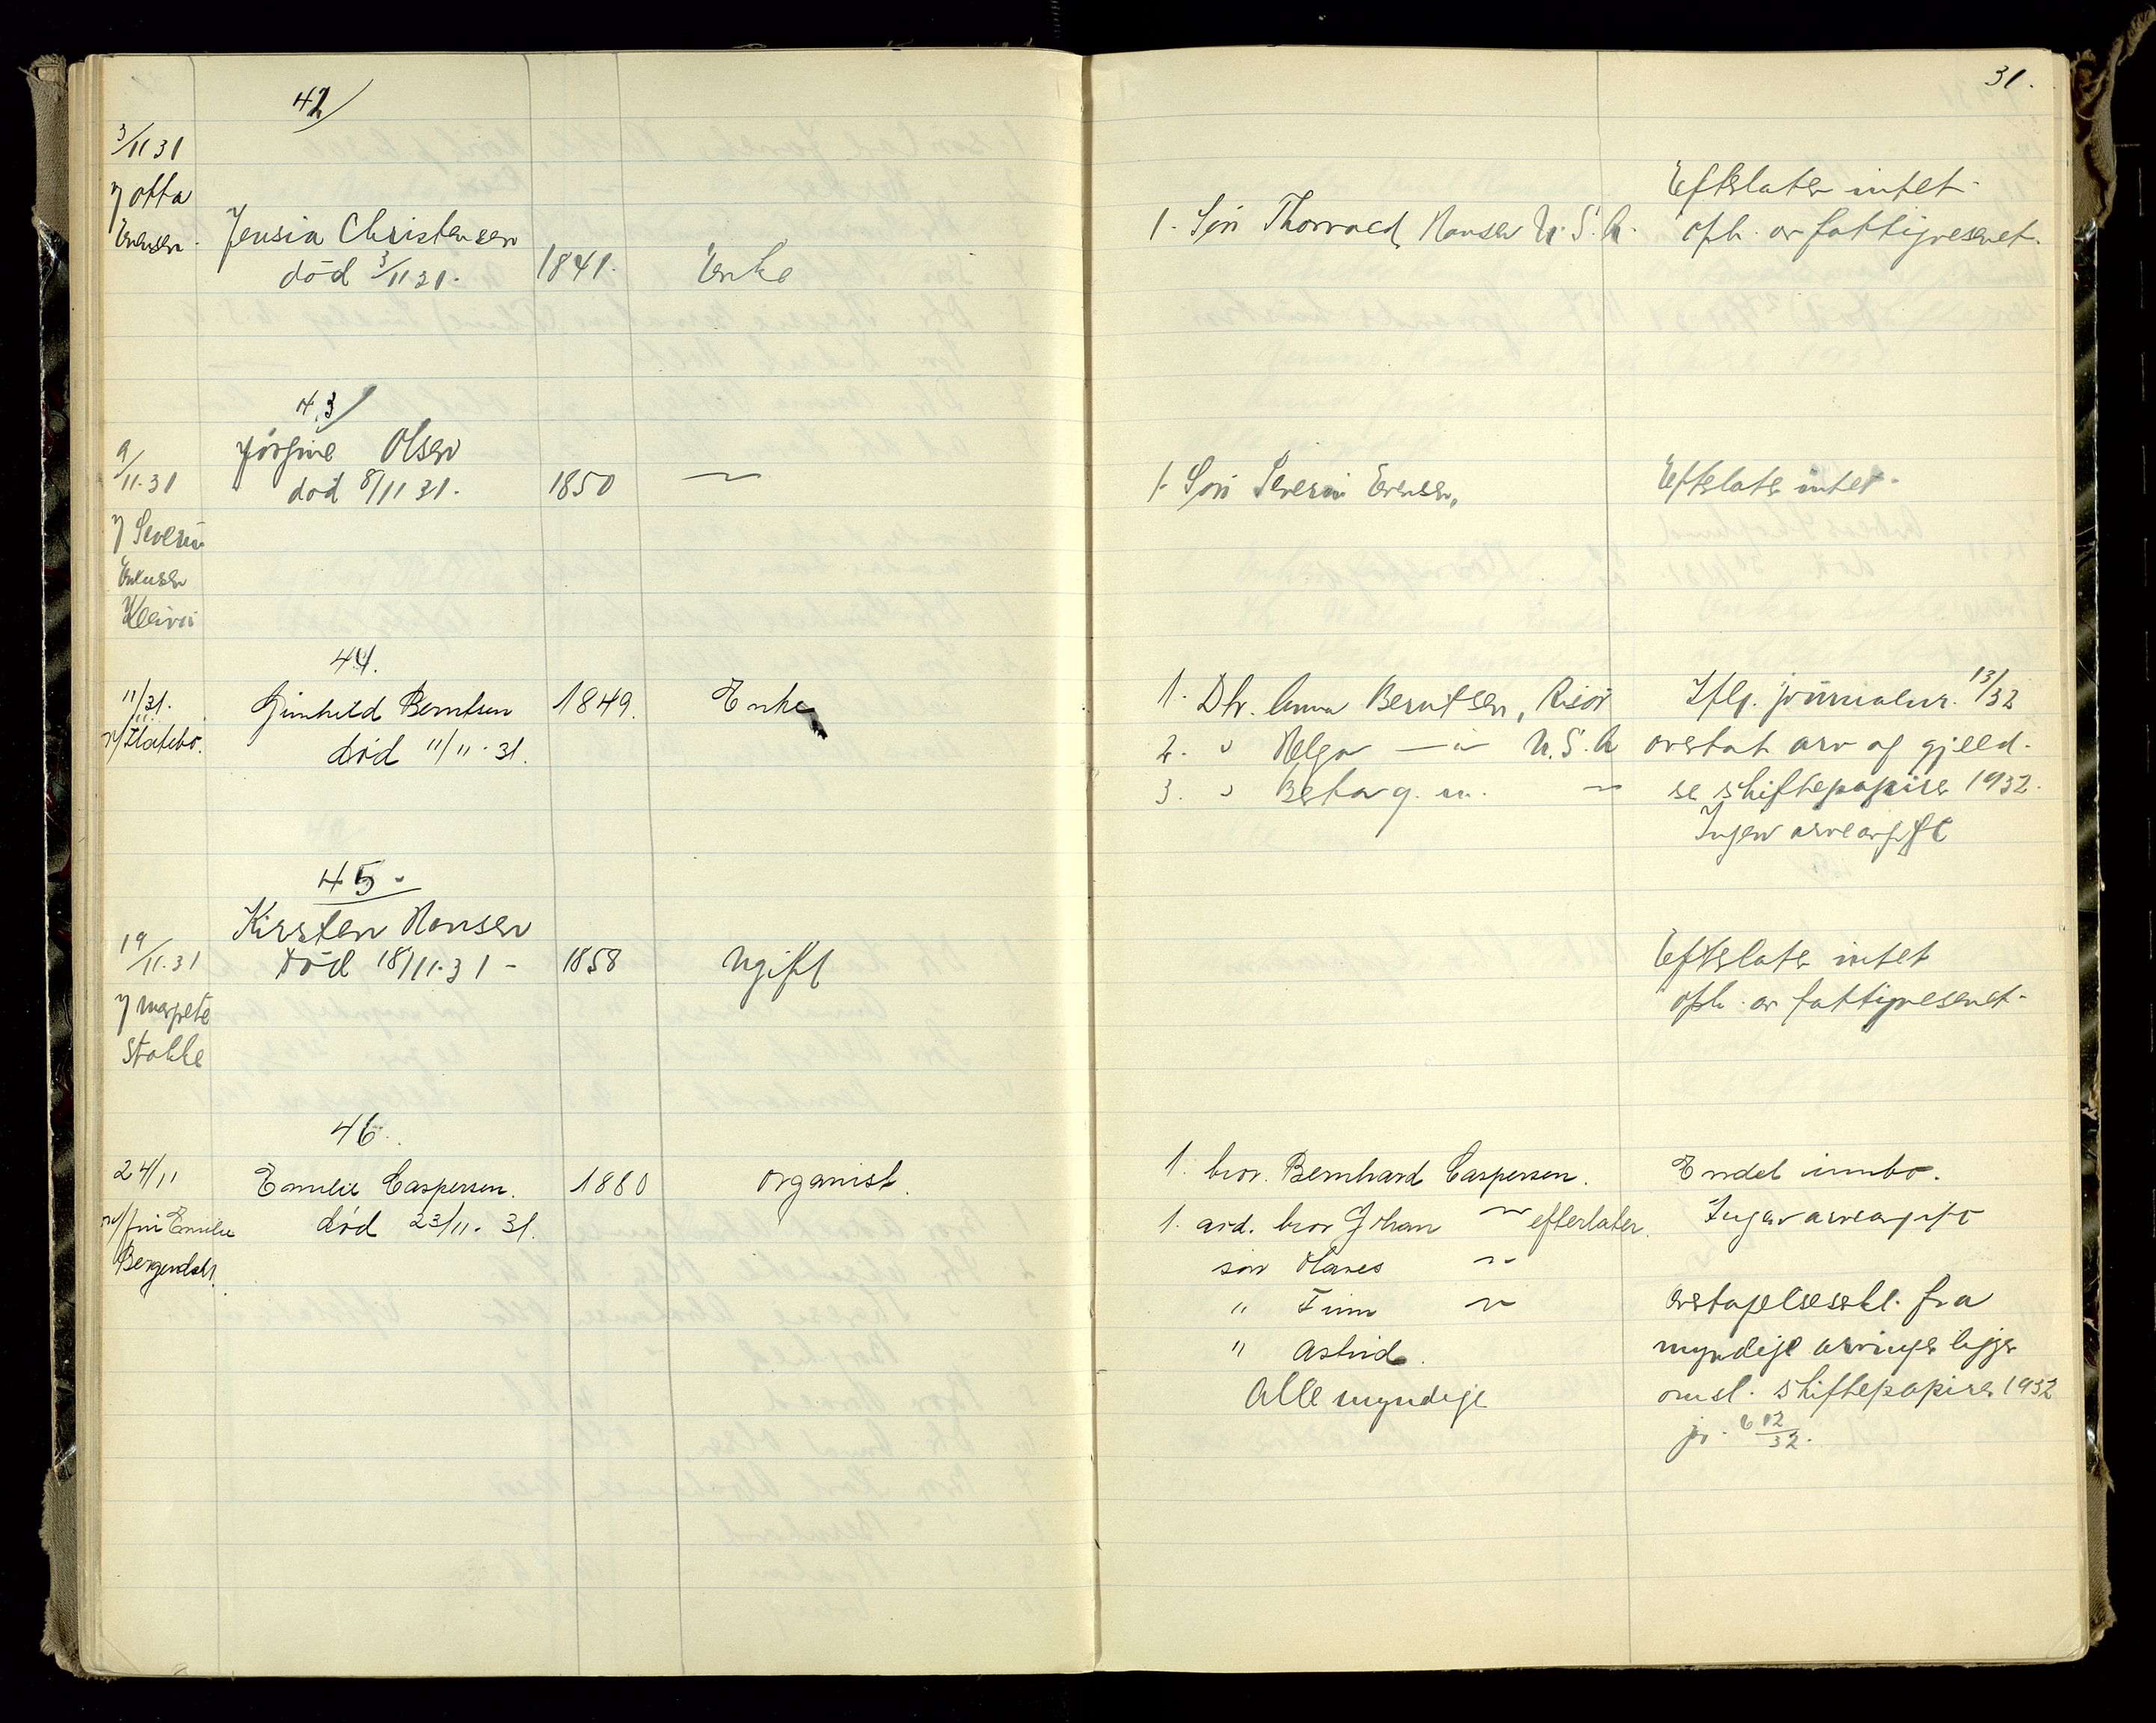 31.
42/
3/11 31
Otta
Evensen.
Jensia Christensen
död 3/11 31.
1841.
Enke
1. Sön Thorvald Hansen U.S.A.
Efterlater intet.
oph. av fattigvesenet.
43/
9/11.31
Severin
Evensen
Jörgine Olsen
död 8/11 31.
1850
—
1. Sön Severin Evensen,
Efterlater intet.
44.
11/11 31.
Gunhild Berntsen
död 11/11. 31.
1849.
Enke
1. Dtr. Anna Berntsen, Risör
2. " Helga —"— U.S.A
3. " Berta g. m. —
Iflg. journalnr. 13/32
overtatt arv og gjeld.
se skiftepapirer 1932.
Ingen arveavgift
45.
19/11.31
Margrete
Stokke
Kirsten Hansen
Död 18/11.31 -
1858
Ugift
Efterlater intet
oph. av fattigvesenet.
46.
24/11
v/ frü Emilie
Bergendahl.
Emilie Caspersen.
död 23/11. 31.
1860
organist.
1. bror. Bernhard Caspersen.
1. avd. bror Johan — efterlater.
sön Hanes —
" Finn —
" Astrid.
Alle myndige
Endel innbo.
Ingen arveavgift
overtagelseserkl. fra
myndige arvinger ligger
omsl. skiftepapirer 1932